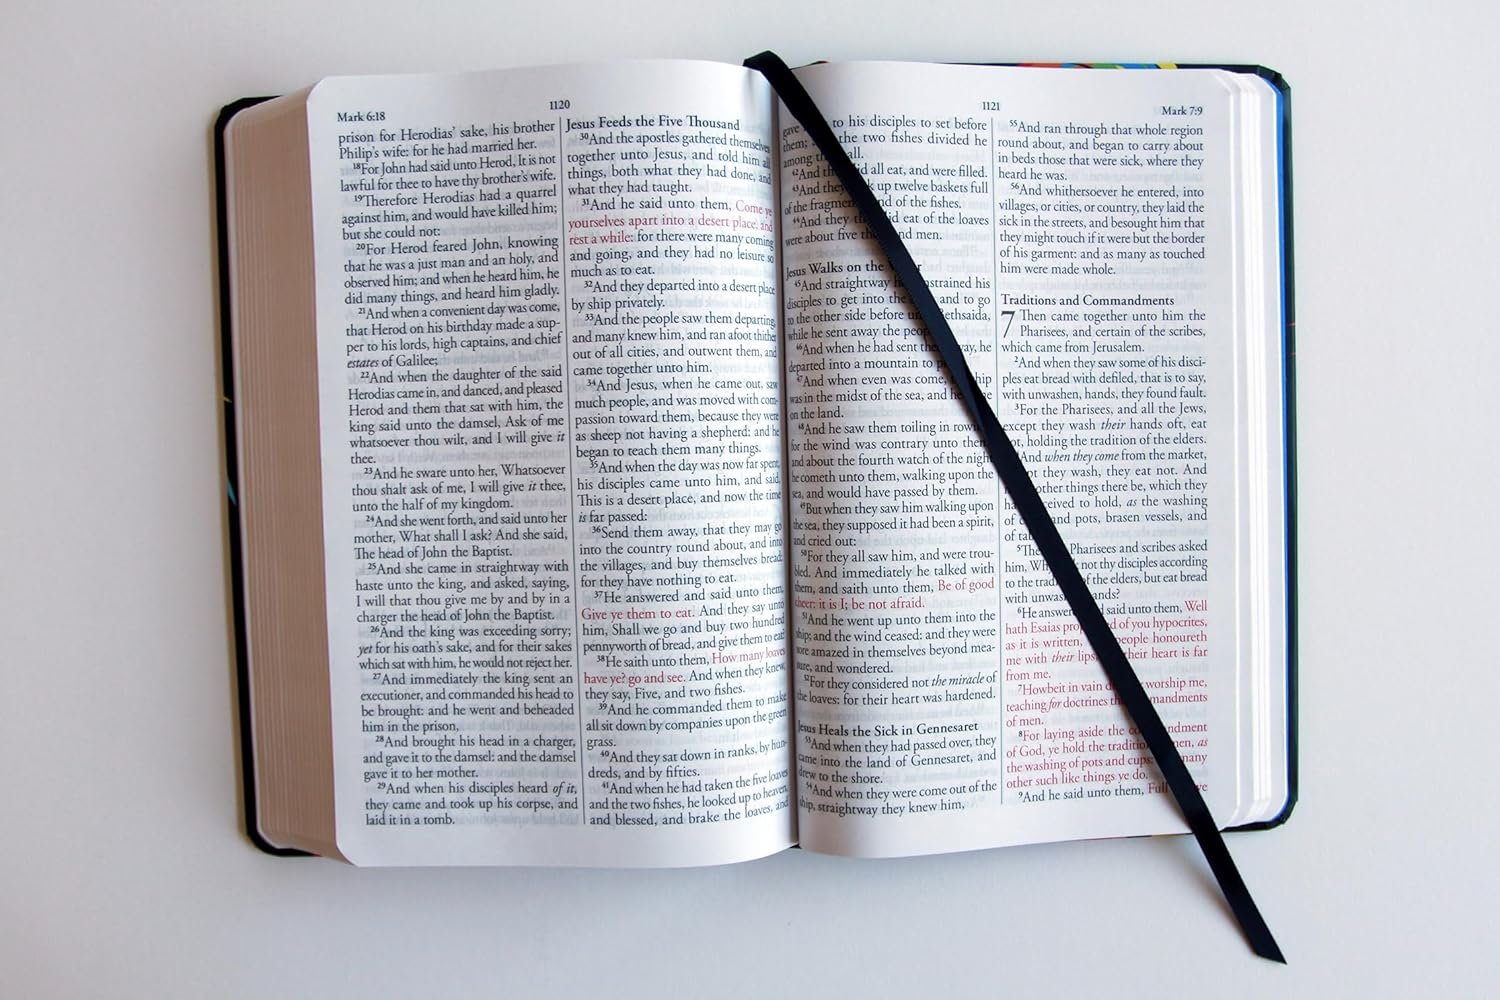 Mark 6:18
1120
prison for Herodias' sake, his brother
Philip's wife: for he had married her.
18For John had said unto Herod, It is not
lawful for thee to have thy brother's wife.
19Therefore Herodias had a quarrel
against him, and would have killed him;
but she could not:
20For Herod feared John, knowing
that he was a just man and an holy, and
observed him; and when he heard him, he
did many things, and heard him gladly.
21And when a convenient day was come,
that Herod on his birthday made a sup-
per to his lords, high captains, and chief
estates of Galilee;
22And when the daughter of the said
Herodias came in, and danced, and pleased
Herod and them that sat with him, the
king said unto the damsel, Ask of me
whatsoever thou wilt, and I will give it
thee.
23And he sware unto her, Whatsoever
thou shalt ask of me, I will give it thee,
unto the half of my kingdom.
24And she went forth, and said unto her
mother, What shall I ask? And she said,
The head of John the Baptist.
25And she came in straightway with
haste unto the king, and asked, saying,
I will that thou give me by and by in a
charger the head of John the Baptist.
26And the king was exceeding sorry;
yet for his oath's sake, and for their sakes
which sat with him, he would not reject her.
27And immediately the king sent an
executioner, and commanded his head to
be brought: and he went and beheaded
him in the prison,
28And brought his head in a charger,
and gave it to the damsel: and the damsel
gave it to her mother.
29And when his disciples heard of it,
they came and took up his corpse, and
laid it in a tomb.
Jesus Feeds the Five Thousand
30And the apostles gathered themselves
together unto Jesus, and told him all
things, both what they had done, and
what they had taught.
31And he said unto them, Come ye
yourselves apart into a desert place, and
rest a while: for there were many coming
and going, and they had no leisure so
much as to eat.
32And they departed into a desert place
by ship privately.
33And the people saw them departing,
and many knew him, and ran afoot thither
out of all cities, and outwent them, and
came together unto him.
34And Jesus, when he came out, saw
much people, and was moved with com-
passion toward them, because they were
as sheep not having a shepherd: and he
began to teach them many things.
35And when the day was now far spent,
his disciples came unto him, and said,
This is a desert place, and now the time
is far passed:
36Send them away, that they may go
into the country round about, and into
the villages, and buy themselves bread:
for they have nothing to eat.
37He answered and said unto them,
Give ye them to eat. And they say unto
him, Shall we go and buy two hundred
pennyworth of bread, and give them to eat?
38He saith unto them, How many loaves
have ye? go and see. And when they knew,
they say, Five, and two fishes.
39And he commanded them to make
all sit down by companies upon the green
grass.
40And they sat down in ranks, by hun-
dreds, and by fifties.
41And when he had taken the five loaves
and the two fishes, he looked up to heaven,
and blessed, and brake the loaves, and
1121
Mark 7:9
gave to his disciples to set before
them; the two fishes divided he
among all.
42And did all eat, and were filled.
43And they up twelve baskets full
of the fragments and of the fishes.
44And they eat of the loaves
were about five men.
Jesus Walks on the
45And straightway constrained his
disciples to get into the and to go
to the other side before Bethsaida,
while he sent away the
46And when he had sent he
departed into a mountain to
47And when even was come, ship
was in the midst of the sea, and he
on the land.
48And he saw them toiling in
for the wind was contrary unto them:
and about the fourth watch of the night
he cometh unto them, walking upon the
sea, and would have passed by them.
49But when they saw him walking upon
the sea, they supposed it had been a spirit,
and cried out:
50For they all saw him, and were trou-
bled. And immediately he talked with
them, and saith unto them, Be of good
cheer: it is I; be not afraid.
51And he went up unto them into the
ship; and the wind ceased: and they were
sore amazed in themselves beyond mea-
sure, and wondered.
52For they considered not the miracle of
the loaves: for their heart was hardened.
Jesus Heals the Sick in Gennesaret
53And when they had passed over, they
came into the land of Gennesaret, and
drew to the shore.
54And when they were come out of the
ship, straightway they knew him,
55And ran through that whole region
round about, and began to carry about
in beds those that were sick, where they
heard he was.
56And whithersoever he entered, into
villages, or cities, or country, they laid the
sick in the streets, and besought him that
they might touch if it were but the border
of his garment: and as many as touched
him were made whole.
Traditions and Commandments
7 Then came together unto him the
Pharisees, and certain of the scribes,
which came from Jerusalem.
2And when they saw some of his disci-
ples eat bread with defiled, that is to say,
with unwashen, hands, they found fault.
3For the Pharisees, and all the Jews,
except they wash their hands oft, eat
not, holding the tradition of the elders.
And when they come from the market,
they wash, they eat not. And
other things there be, which they
received to hold, as the washing
of and pots, brasen vessels, and
of
5Then Pharisees and scribes asked
him, Why not thy disciples according
to the of the elders, but eat bread
with hands?
6He answered and said unto them, Well
hath Esaias of you hypocrites,
as it is written, people honoureth
me with their lips, their heart is far
from me.
7Howbeit in vain worship me,
teaching for doctrines commandments
of men.
8For laying aside the commandment
of God, ye hold the tradition men, as
the washing of pots and cups: many
other such like things ye do.
9And he said unto them, Full